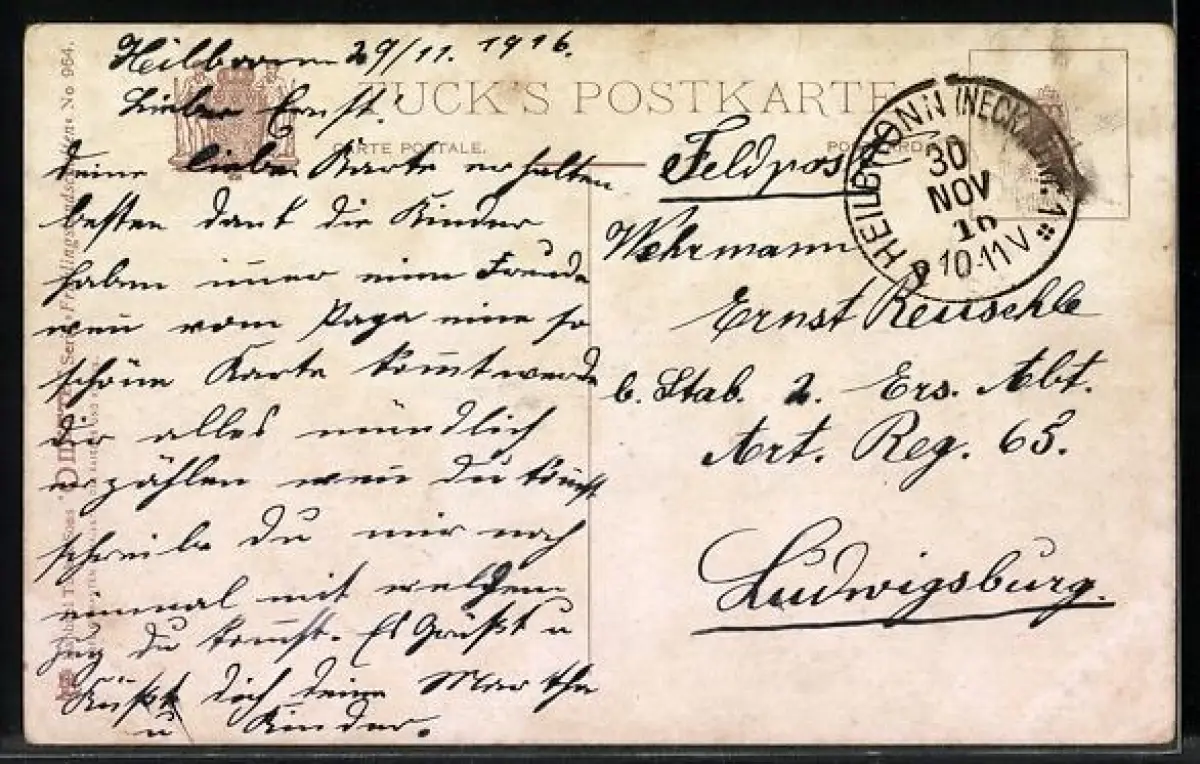 Heilbronn 29/11. 1916.
Lieber Ernst!
deine liebe Karte erhalten
besten dank die Kinder
haben imer eine Freude
wen vom Papa eine so
schöne Karte komt werde
dir alles mündlich
erzählen wen du komst
schreibe du mir noch
einmal mit welchem
zug du komst. Es Grüßt u
Küßt dich deine Martha
u Kinder.
TUCK'S POSTKARTE
CARTE POSTALE.
Feldpost
HEILBRONN (NECKAR) 1
30
NOV
16
10-11V
Wehrmann
Ernst Reuschle
b. Stab. 2. Ers. Abt.
Art. Reg. 65.
Ludwigsburg.
No 964.